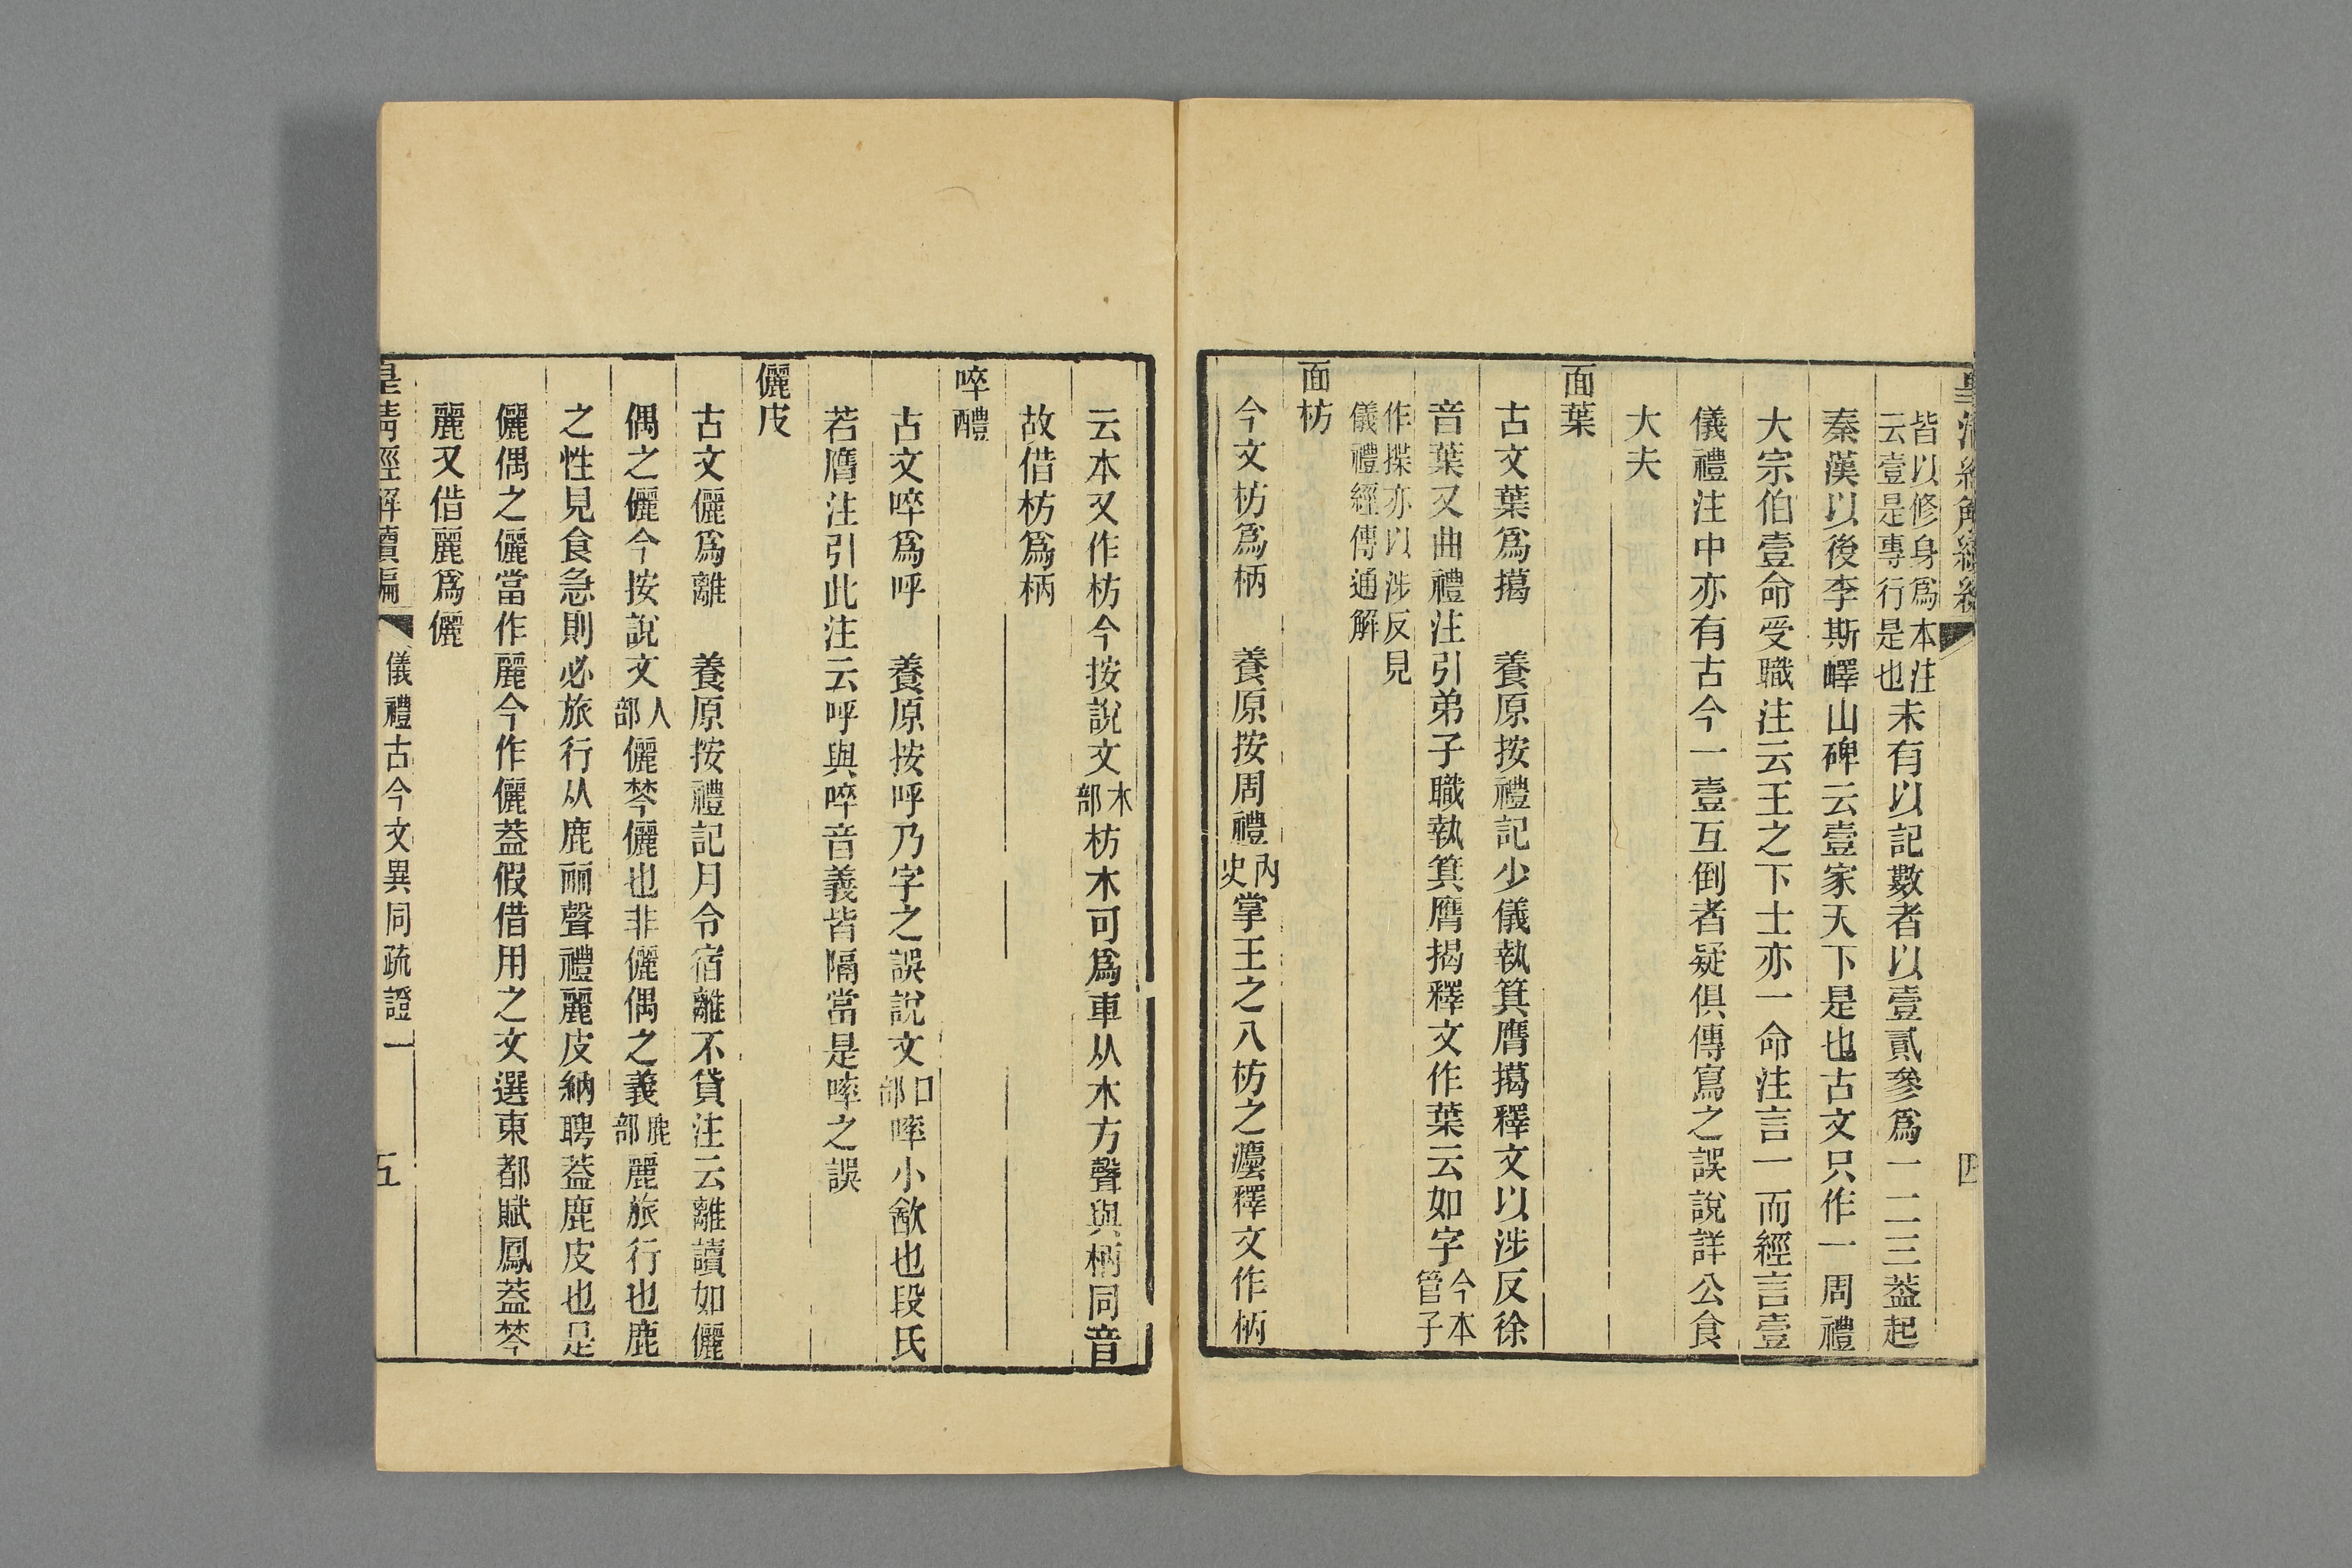 皇淸經解續編
四
皆以修身爲本注云壹是專行是也未有以記數者以壹貳參爲一二三葢起
秦漢以後李斯嶧山碑云壹家天下是也古文只作一周禮
大宗伯壹命受職注云王之下士亦一命注言一而經言壹
儀禮注中亦有古今一壹互倒者疑俱傳寫之誤說詳公食
大夫
面葉
古文葉爲擖　養原按禮記少儀執箕膺擖釋文以涉反徐
音葉又曲禮注引弟子職執箕膺揭釋文作葉云如字今本管子
作揲亦以涉反見儀禮經傳通解
面枋
今文枋爲柄　養原按周禮內史掌王之八枋之灋釋文作柄
云本又作枋今按說文木部枋木可爲車从木方聲與柄同音
故借枋爲柄
啐醴
古文啐爲呼　養原按呼乃字之誤說文口部啐小歠也段氏
若膺注引此注云呼與啐音義皆隔當是啐之誤
儷皮
古文儷爲離　養原按禮記月令宿離不貸注云離讀如儷
偶之儷今按說文人部儷棽儷也非儷偶之義鹿部麗旅行也鹿
之性見食急則必旅行从鹿丽聲禮麗皮納聘葢鹿皮也是
儷偶之儷當作麗今作儷葢假借用之文選東都賦鳳葢棽
麗又借麗爲儷
皇淸經解續編
儀禮古今文異同疏證一
五